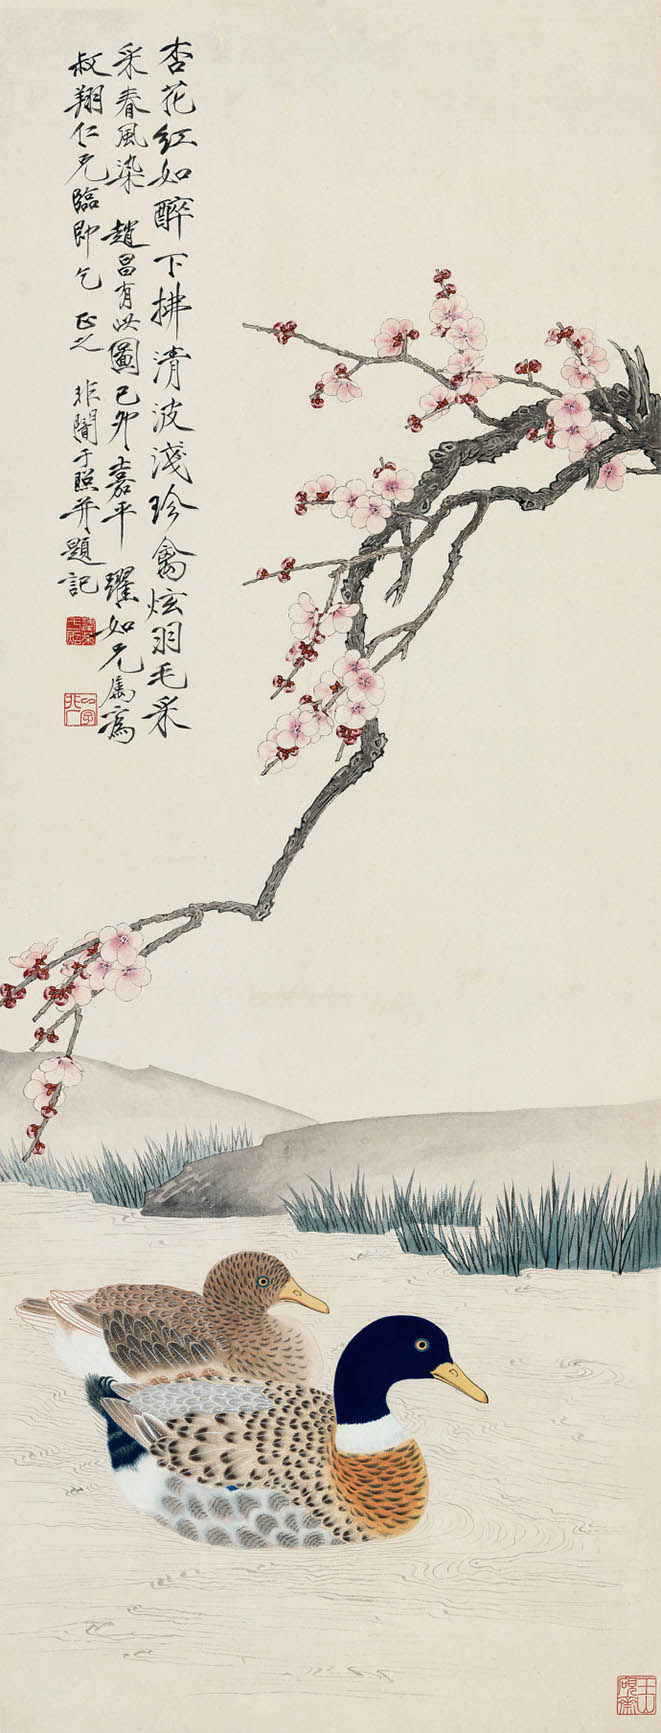 杏花紅如醉下拂清波淺珍禽炫羽毛采
采春風染 趙昌有此圖己卯嘉平 躍如兄屬寫
叔翔仁兄臨即乞 正之 非闇于照并題記